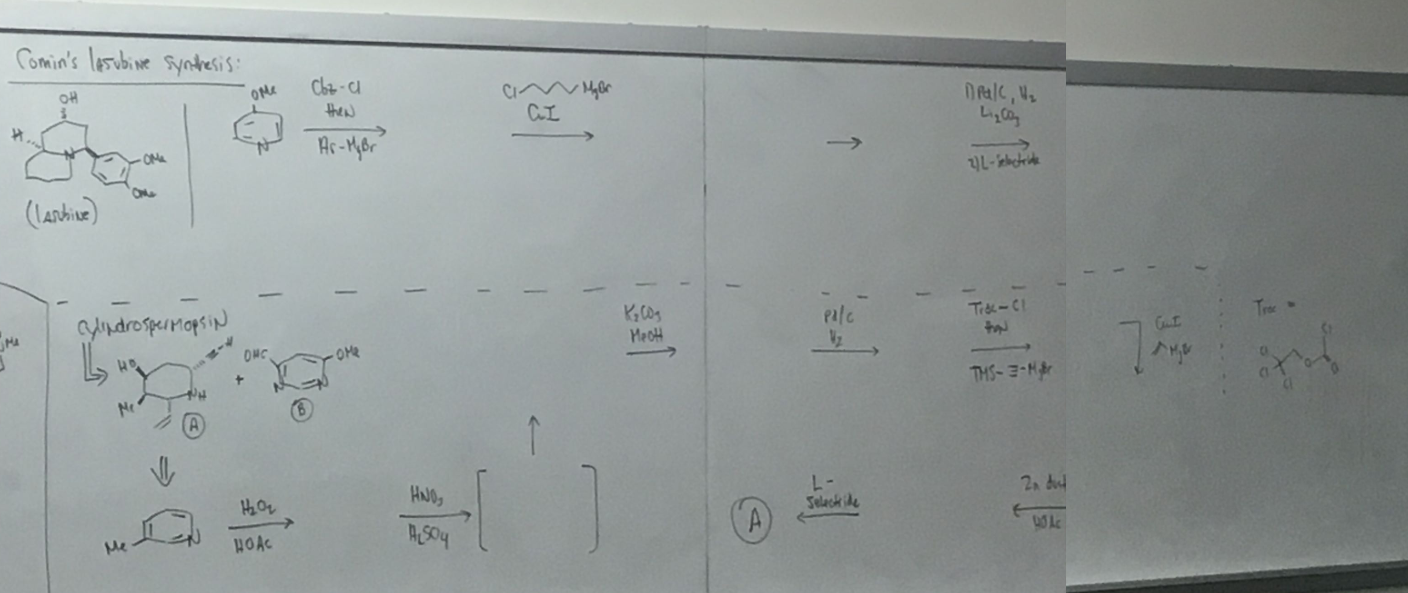 Comin's lasubine synthesis:
OH
H
N
OMe
OMe
(lasubine)
OMe
N
Cbz-Cl
then
Ar-MgBr
Cl MgBr
CuI
1) Pd/C, H₂
Li₂CO₃
2) L-Selectride
Me
cylindrospermopsin
HO
Me
NH
A
+
OHC
OMe
N N
B
K₂CO₃
MeOH
Pd/C
H₂
Troc-Cl
then
TMS-≡-MgBr
CuI
MgBr
Troc =
Cl
Cl
Cl
O
Cl
O
Me
N
H₂O₂
HOAc
HNO₃
H₂SO₄
A
L-
Selectride
Zn dust
HOAc